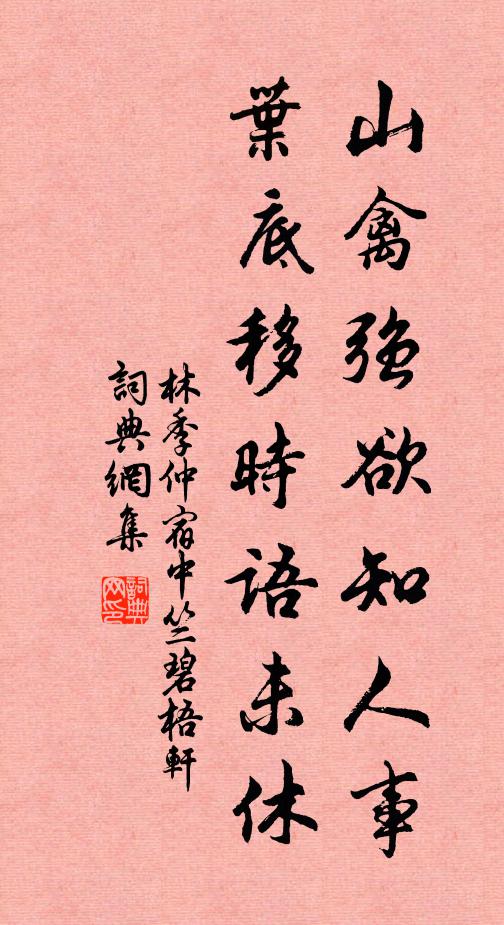 山禽強欲知人事
葉底移時語未休
林季仲宿中竺碧梧軒
詞典網集
詞典
网印